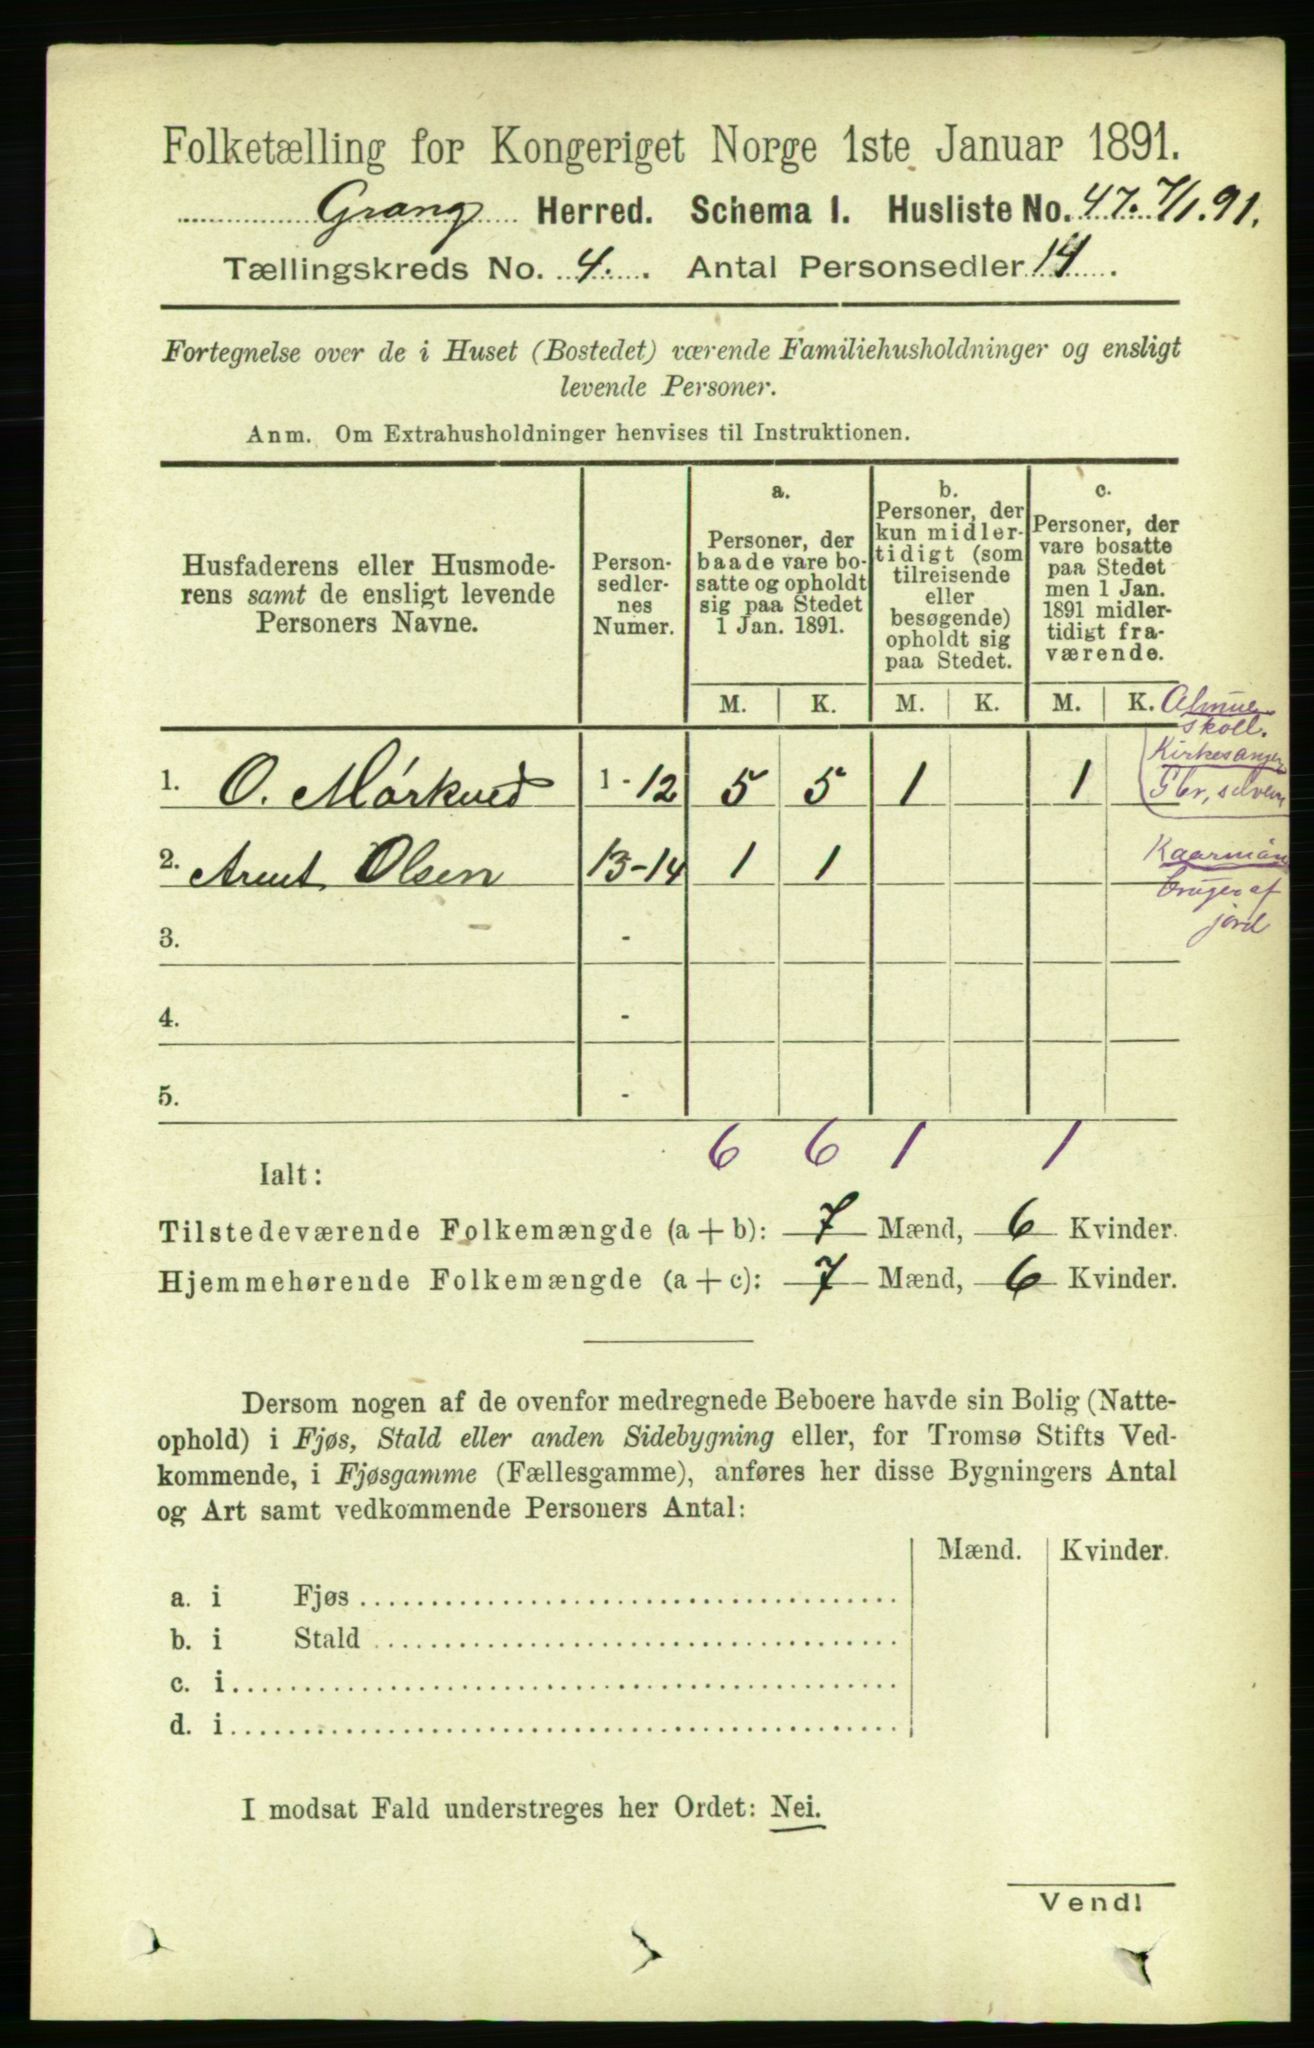 Folketælling for Kongeriget Norge 1ste Januar 1891.
Grong Herred. Schema I. Husliste No. 47. 7/1.91.
Tællingskreds No. 4. Antal Personsedler 14.
Fortegnelse over de i Huset (Bostedet) værende Familiehusholdninger og ensligt
levende Personer.
Anm. Om Extrahusholdninger henvises til Instruktionen.
Husfaderens eller Husmode-
rens samt de ensligt levende
Personers Navne.
Person-
sedler-
nes
Numer.
a.
Personer, der
baade vare bo-
satte og opholdt
sig paa Stedet
1 Jan. 1891.
b.
Personer, der
kun midler-
tidigt (som
tilreisende
eller
besøgende)
opholdt sig
paa Stedet.
c.
Personer, der
vare bosatte
paa Stedet
men 1 Jan.
1891 midler-
tidigt fra-
værende.
M. K. M. K. M. K.
Almue
skoll.
Kirkesanger
Gbr, selveier
1. O. Mørkved 1-12 5 5 1 1
2. Arent Olsen 13-14 1 1
Kaarman
bruger af
jord
3. -
4. -
5. -
6 6 1 1
Ialt:
Tilstedeværende Folkemængde (a + b): 7 Mænd, 6 Kvinder.
Hjemmehørende Folkemængde (a + c): 7 Mænd, 6 Kvinder.
Dersom nogen af de ovenfor medregnede Beboere havde sin Bolig (Natte-
ophold) i Fjøs, Stald eller anden Sidebygning eller, for Tromsø Stifts Ved-
kommende, i Fjøsgamme (Fællesgamme), anføres her disse Bygningers Antal
og Art samt vedkommende Personers Antal:
Mænd. Kvinder.
a. i Fjøs
b. i Stald
c. i
d. i
I modsat Fald understreges her Ordet: Nei.
Vend!